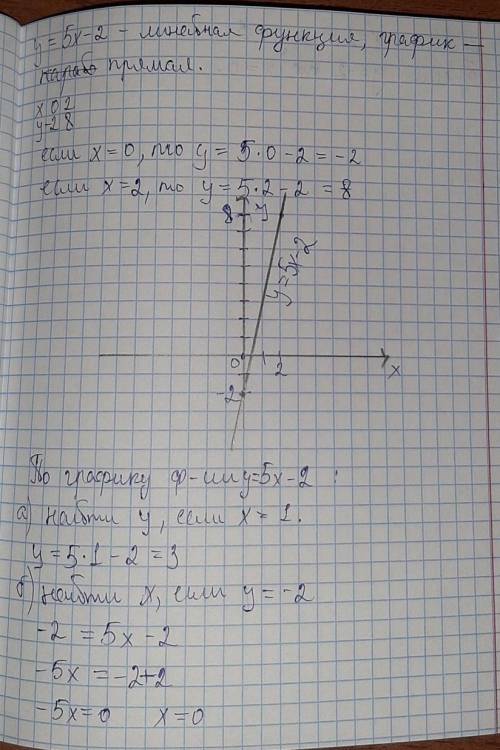 y = 5x-2 - линейная функция, график -
параб прямая.
x 0 2
y -2 8
если x = 0, то y = 5·0 - 2 = -2
если x = 2, то y = 5·2 - 2 = 8
8 y
y = 5x-2
0 2 x
-2
По графику ф-ии y=5x-2 :
а) найти y, если x = 1.
y = 5·1 - 2 = 3
б) найти x, если y = -2
-2 = 5x - 2
-5x = -2+2
-5x=0 x=0